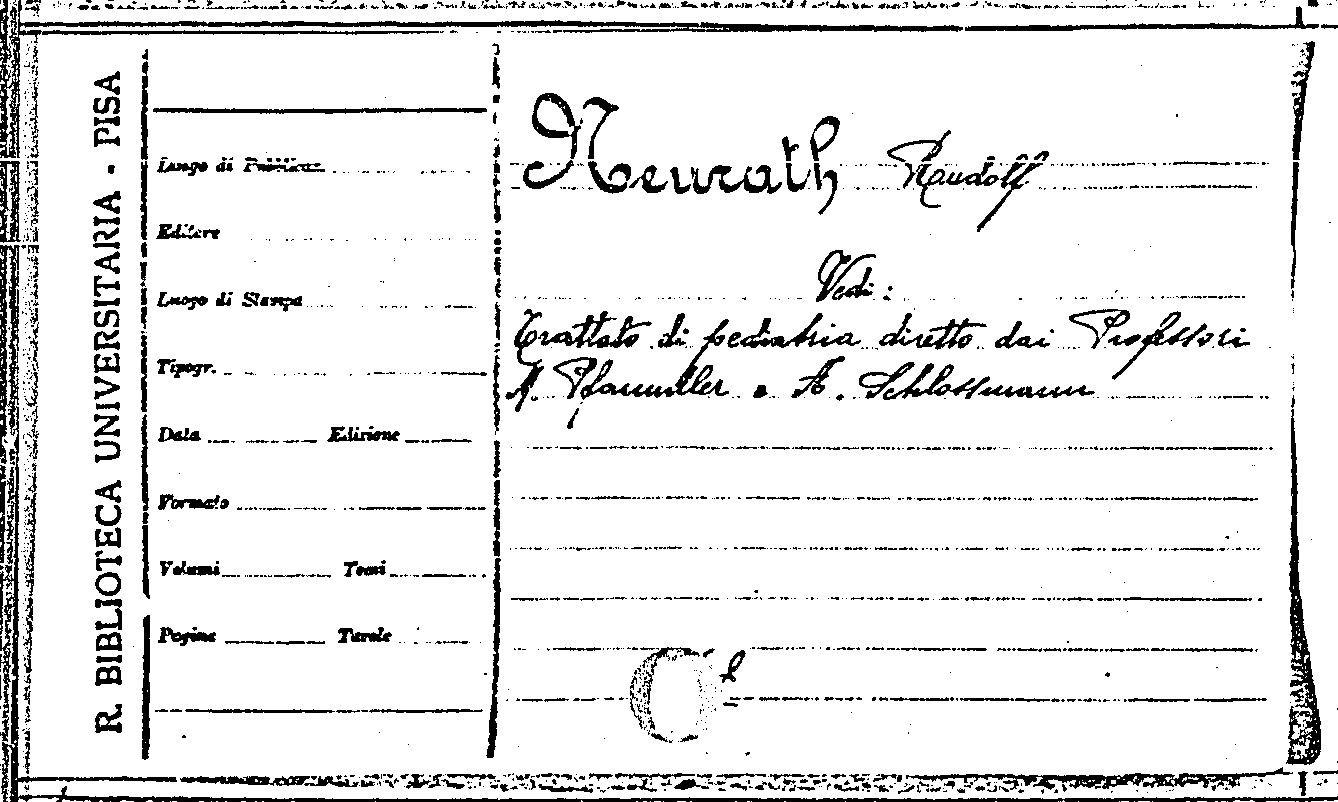 R. BIBLIOTECA UNIVERSITARIA - PISA
Luogo di Pubblicaz.
Editore
Luogo di Stampa
Tipogr.
Data Edizione
Formato
Volumi Tomi
Pagine Tavole
Neurath Raudolf
Vedi:
Trattato di pediatria diretto dai Professori
M. Pfaundler e A. Schlossmann